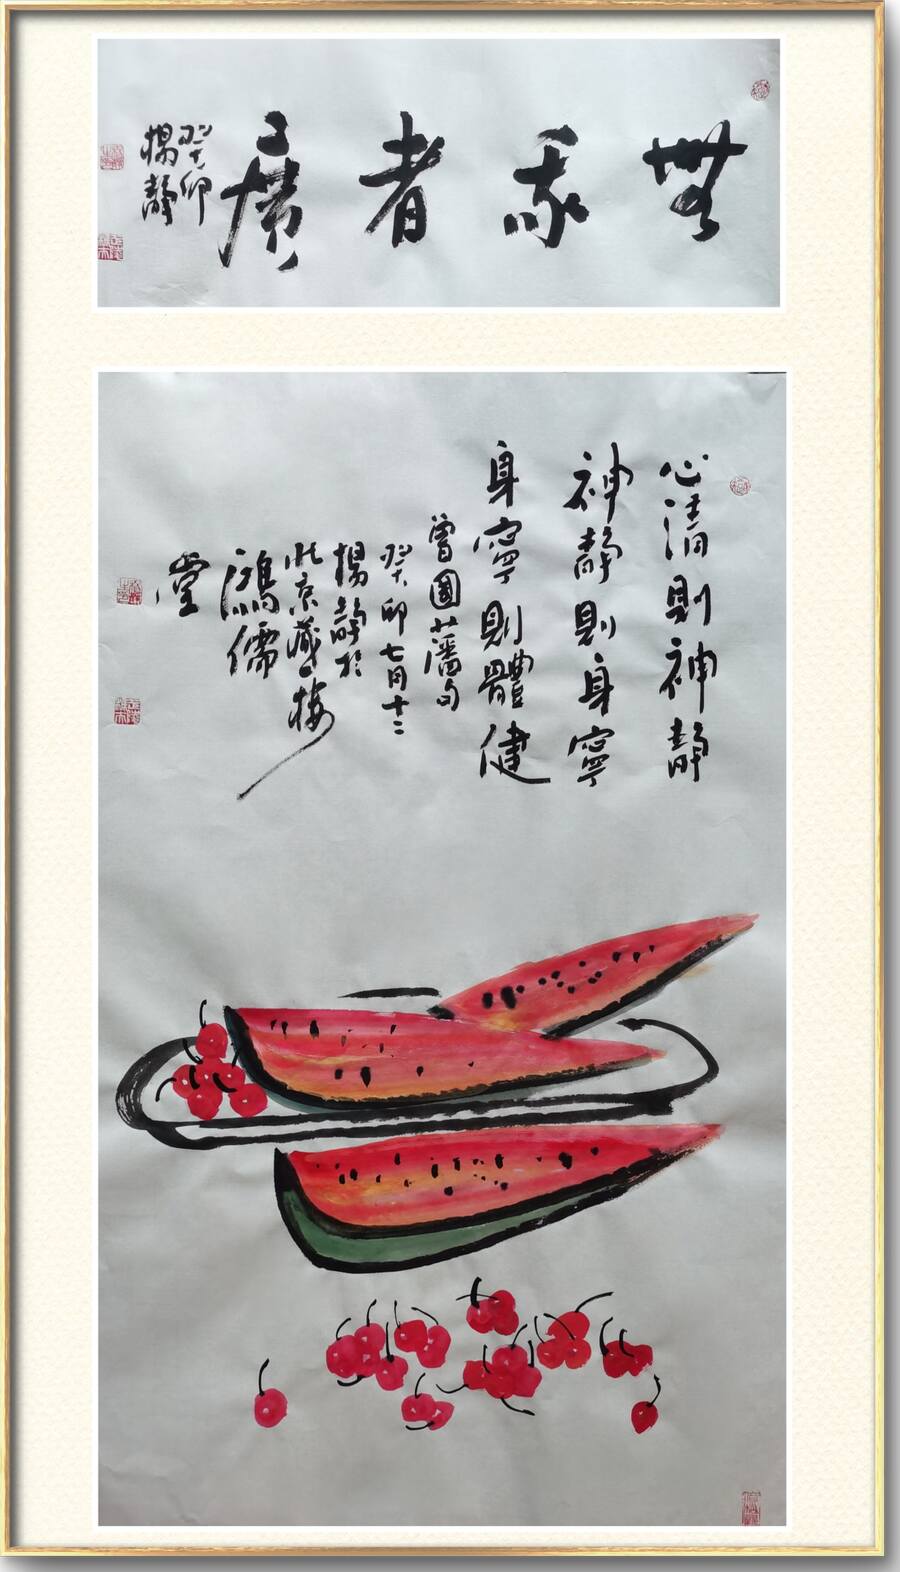 無我者廣
癸卯
楊靜
心清則神靜
神靜則身寧
身寧則體健
曾國藩句
癸卯七月十二
楊靜於
北京藏心樓
鴻儒
堂